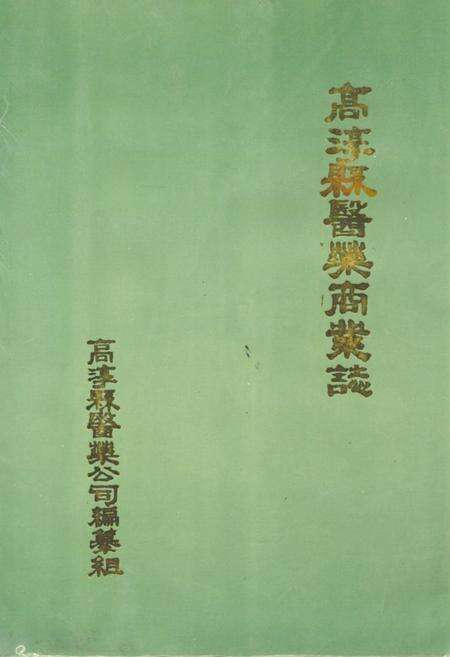 高淳縣醫藥商業誌
高淳縣醫藥公司編纂組